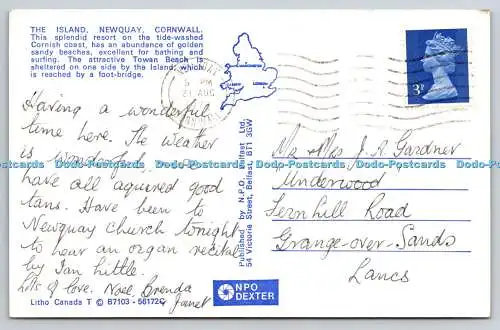 THE ISLAND, NEWQUAY, CORNWALL.
This splendid resort on the tide-washed
Cornish coast, has an abundance of golden
sandy beaches, excellent for bathing and
surfing. The attractive Towan Beach is
sheltered on one side by the Island, which
is reached by a foot-bridge.
Having a wonderful
time here. The weather
is
have all aquired good
tans. Have been to
Newquay church tonight
to hear an organ recital
by Ian Little.
Lots of love. Noel, Brenda
Janet
Litho Canada T © B7103 - 56172C
Published by N.P.O. Belfast Ltd.
54 Victoria Street, Belfast, BT1 3GW
NPO
DEXTER
PM
21 AUG
3P
Mr & Mrs J. A. Gardner
Underwood
Fernhill Road
Grange-over-Sands
Lancs
Dodo-Postcards.com